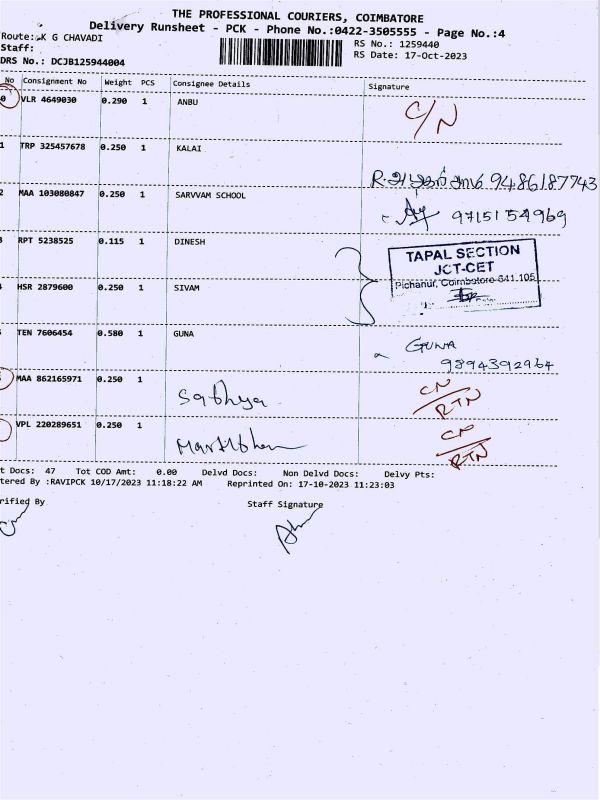 THE PROFESSIONAL COURIERS, COIMBATORE
Delivery Runsheet - PCK - Phone No.:0422-3505555 - Page No.:4
Route: K G CHAVADI
RS No.: 1259440
Staff:
RS Date: 17-Oct-2023
DRS No.: DCJB125944004
No Consignment No Weight PCS Consignee Details Signature
0 VLR 4649030 0.290 1 ANBU C/N
1 TRP 325457678 0.250 1 KALAI
R. 9486187743
2 MAA 103080847 0.250 1 SARVVAM SCHOOL
9715154969
3 RPT 5238525 0.115 1 DINESH
TAPAL SECTION
JCT-CET
Pichanur, Coimbatore-641 105
HSR 2879600 0.250 1 SIVAM
TEN 7606454 0.580 1 GUNA
GUNA
9894392964
MAA 862165971 0.250 1 Sathya CN/RTN
VPL 220289651 0.250 1 CN/RTN
t Docs: 47 Tot COD Amt: 0.00 Delvd Docs: Non Delvd Docs: Delvy Pts:
tered By :RAVIPCK 10/17/2023 11:18:22 AM Reprinted On: 17-10-2023 11:23:03
rified By Staff Signature